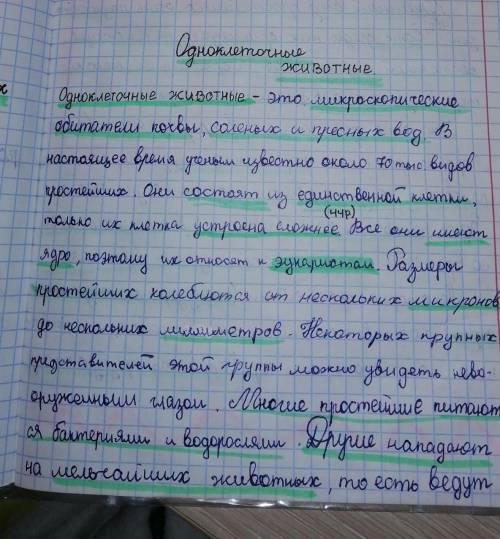 Одноклеточные
животные.
х
Одноклеточные животные - это микроскопические
обитатели почвы, соленых и пресных вод. В
настоящее время учёным известно около 70 тыс. видов
простейших. Они состоят из единственной клетки,
только их клетка устроена сложнее. Все они имеют
ядро, поэтому их относят к эукариотам. Размеры
простейших колеблются от нескольких микронов
до нескольких миллиметров. Некоторых крупных
представителей этой группы можно увидеть нево-
оруженным глазом. Многие простейшие питают
ся бактериями и водорослями. Другие нападают
на мельчайших животных, то есть ведут